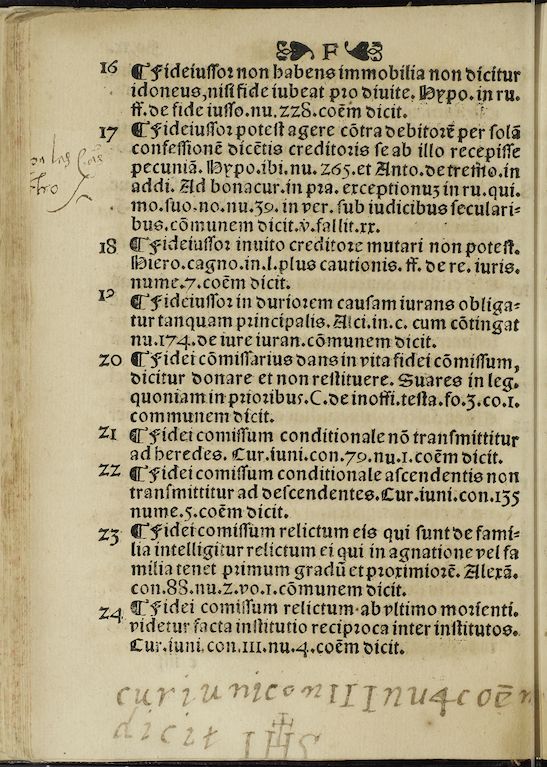 F
16 ¶Fideiussor non habens immobilia non dicitur
idoneus, nisi fide iubeat pro diuite. Hypo. in ru.
ff. de fide iusso. nu. 228. coēm dicit.
17 ¶Fideiussor potest agere cōtra debitorē per solā
confessionē dicētis creditoris se ab illo recepisse
pecuniā. Hypo. ibi. nu. 265. et Anto. de tremo. in
addi. Ad bonacur. in pra. exceptionuȝ in ru. qui.
mo. suo. no. nu. 39. in ver. sub iudicibus seculari=
bus. cōmunem dicit. v. fallit. xx.
18 ¶Fideiussor inuito creditore mutari non potest.
Hiero. cagno. in. l. plus cautionis. ff. de re. iuris.
nume. 7. coēm dicit.
19 ¶Fideiussor in duriorem causam iurans obliga=
tur tanquam principalis. Alci. in. c. cum cōtingat
nu. 174. de iure iuran. cōmunem dicit.
20 ¶Fidei cōmissarius dans in vita fidei cōmissum,
dicitur donare et non restituere. Suares in leg.
quoniam in prioribus. C. de inoffi. testa. fo. 3. co. 1.
communem dicit.
21 ¶Fidei comissum conditionale nō transmittitur
ad heredes. Cur. iuni. con. 79. nu. 1. coēm dicit.
22 ¶Fidei comissum conditionale ascendentis non
transmittitur ad descendentes. Cur. iuni. con. 135
nume. 5. coēm dicit.
23 ¶Fidei comissum relictum eis qui sunt de fami=
lia intelligitur relictum ei qui in agnatione vel fa
milia tenet primum gradū et proximiorē. Alexā.
con. 88. nu. 2. vo. 1. cōmunem dicit.
24 ¶Fidei comissum relictum ab vltimo morienti.
videtur facta institutio reciproca inter institutos.
Cur. iuni. con. 111. nu. 4. coēm dicit.
cur iuni con 111 nu 4 coēm
dicit IHS